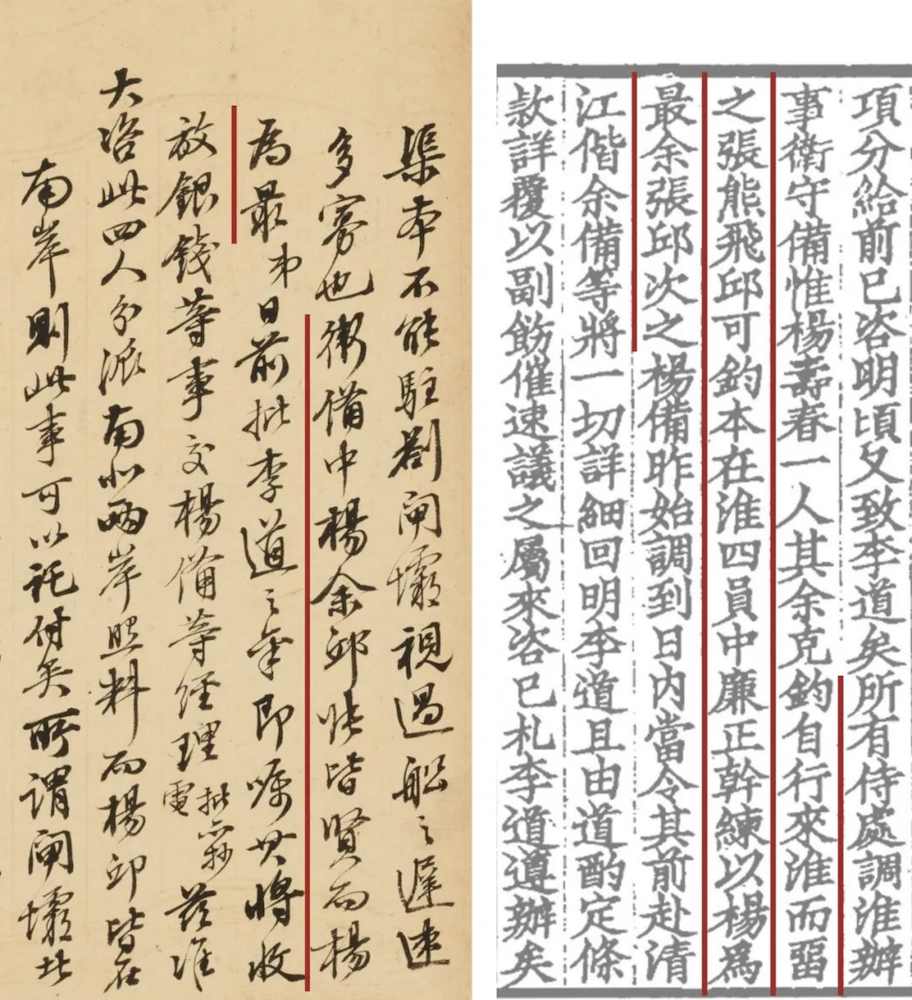 渠本不能駐劄閘壩視過船之遲速
多寡也衛備中楊余邱張皆賢而楊
為最弟日前批李道之稟即囑其將收
放銀錢等事交楊備等經理批亦抄電茲准
大咨此四人分派南北兩岸照料而楊邱皆在
南岸則此事可以託付矣所謂閘壩北
項分給前已咨明頃又致李道矣所有侍處調淮辦
事衛守備惟楊壽春一人其余克釣自行來淮而畱
之張熊飛邱可釣本在淮四員中廉正幹練以楊爲
最余張邱次之楊備昨始調到日内當令其前赴清
江偕余備等將一切詳細回明李道且由道酌定條
款詳覆以副飭催速議之屬來咨已札李道遵辦矣